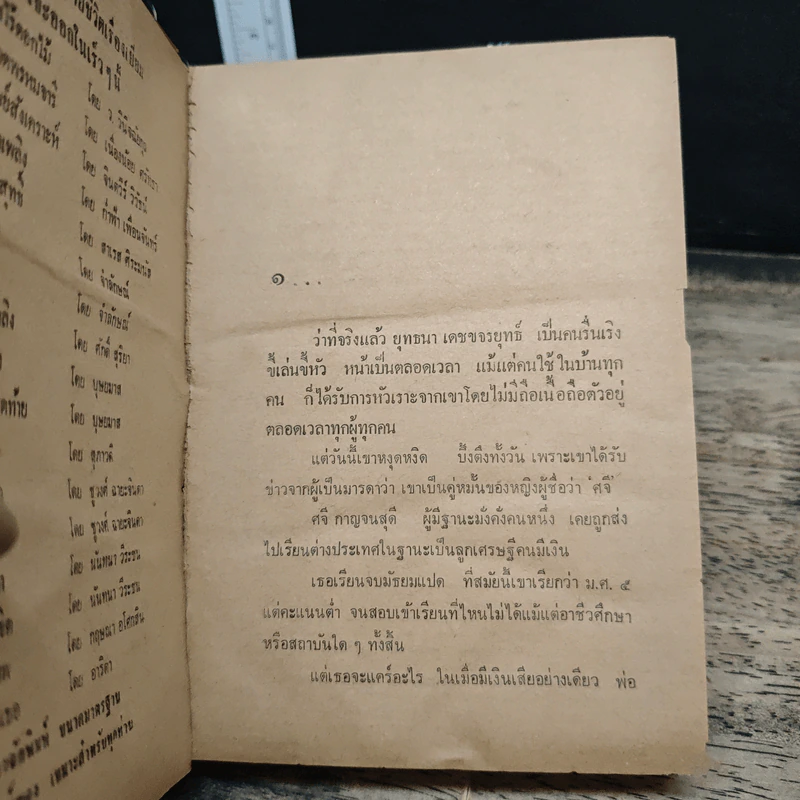 ออกในเร็วๆ นี้
โดย ว. วินิจฉัยกุล
โดย เนื่องน้อย ศรัทธา
โดย จินตวีร์ วิวัธน์
โดย ก่ำฟ้า เพื่อนจันทร์
โดย สาเรส ศิระมนัส
โดย จำลักษณ์
โดย จำลักษณ์
โดย ศักดิ์ สุริยา
โดย บุษยมาส
โดย บุษยมาส
โดย สุภาวดี
โดย ชูวงศ์ ฉายะจินดา
โดย ชูวงศ์ ฉายะจินดา
โดย นันทนา วีระชน
โดย นันทนา วีระชน
โดย กฤษณา อโศกสิน
โดย อาริตา
ขนาดมาตรฐาน
เหมาะสำหรับทุกท่าน
๑...
ว่าที่จริงแล้ว ยุทธนา เดชขจรยุทธ์ เป็นคนรื่นเริง
ขี้เล่นขี้หัว หน้าเป็นตลอดเวลา แม้แต่คนใช้ในบ้านทุก
คน ก็ได้รับการหัวเราะจากเขาโดยไม่มีถือเนื้อถือตัวอยู่
ตลอดเวลาทุกผู้ทุกคน
แต่วันนี้เขาหงุดหงิด บึ้งตึงทั้งวัน เพราะเขาได้รับ
ข่าวจากผู้เป็นมารดาว่า เขาเป็นคู่หมั้นของหญิงผู้ชื่อว่า ‘ศจี’
ศจี กาญจนสุดี ผู้มีฐานะมั่งคั่งคนหนึ่ง เคยถูกส่ง
ไปเรียนต่างประเทศในฐานะเป็นลูกเศรษฐีคนมีเงิน
เธอเรียนจบมัธยมแปด ที่สมัยนี้เขาเรียกว่า ม.ศ. ๕
แต่คะแนนต่ำ จนสอบเข้าเรียนที่ไหนไม่ได้แม้แต่อาชีวศึกษา
หรือสถาบันใด ๆ ทั้งสิ้น
แต่เธอจะแคร์อะไร ในเมื่อมีเงินเสียอย่างเดียว พ่อ